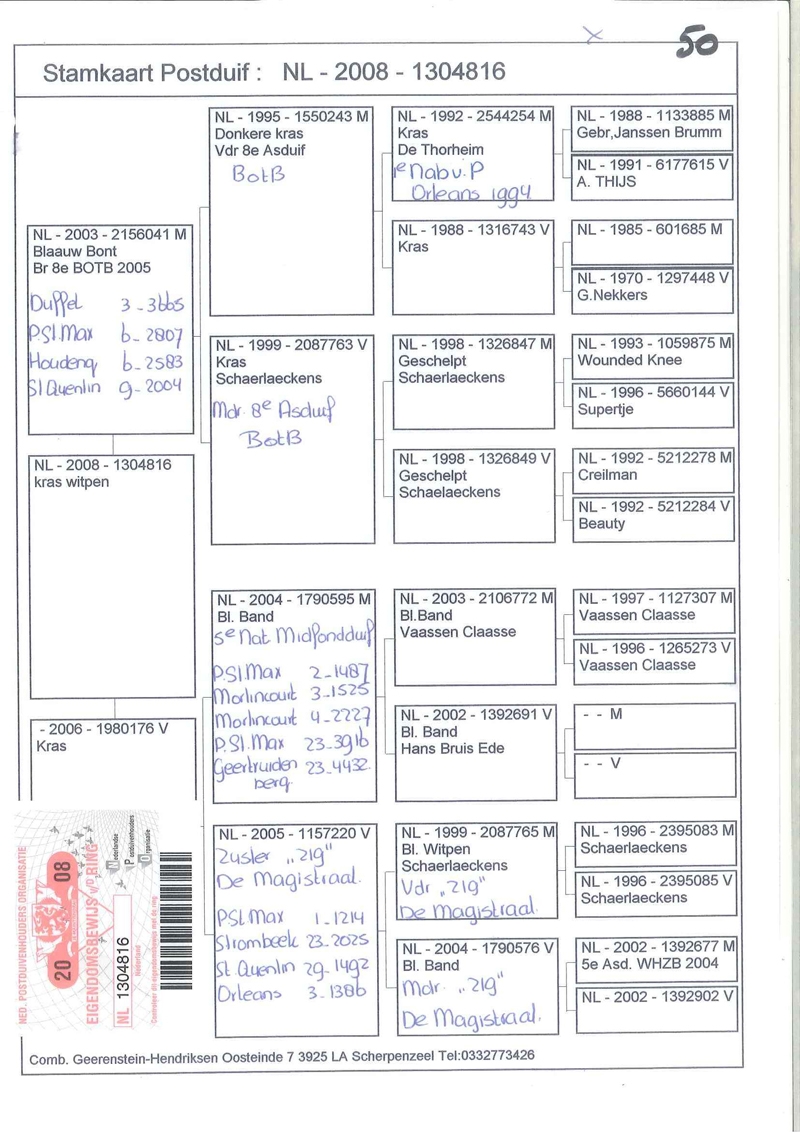 50
Stamkaart Postduif : NL - 2008 - 1304816
NL - 2003 - 2156041 M
Blaauw Bont
Br 8e BOTB 2005
Duffel 3-3665
P.Sl.Max 6-2807
Houdenq 6-2583
Sl Quenlin 9-2004
NL - 2008 - 1304816
kras witpen
- 2006 - 1980176 V
Kras
NL - 1995 - 1550243 M
Donkere kras
Vdr 8e Asduif
BotB
NL - 1999 - 2087763 V
Kras
Schaerlaeckens
Mdr. 8e Asduif
BotB
NL - 2004 - 1790595 M
Bl. Band
5e Nat Midfondduif
P.Sl.Max 2-1487
Morlincourt 3-1525
Morlincourt 4-2227
P.Sl.Max 23-3916
Geertruiden 23-4432
berg.
NL - 2005 - 1157220 V
Zusler „219"
De Magistraal.
P.Sl.Max 1-1214
Strombeek 23-2025
St.Quenlin 29-1492
Orleans 3-1386
NL - 1992 - 2544254 M
Kras
De Thorheim
1e Nab v.P
Orleans 1994
NL - 1988 - 1316743 V
Kras
NL - 1998 - 1326847 M
Geschelpt
Schaerlaeckens
NL - 1998 - 1326849 V
Geschelpt
Schaelaeckens
NL - 2003 - 2106772 M
Bl.Band
Vaassen Claasse
NL - 2002 - 1392691 V
Bl. Band
Hans Bruis Ede
NL - 1999 - 2087765 M
Bl. Witpen
Schaerlaeckens
Vdr „219"
De Magistraal.
NL - 2004 - 1790576 V
Bl. Band
Mdr. „219"
De Magistraal.
NL - 1988 - 1133885 M
Gebr,Janssen Brumm
NL - 1991 - 6177615 V
A. THIJS
NL - 1985 - 601685 M
NL - 1970 - 1297448 V
G.Nekkers
NL - 1993 - 1059875 M
Wounded Knee
NL - 1996 - 5660144 V
Supertje
NL - 1992 - 5212278 M
Creilman
NL - 1992 - 5212284 V
Beauty
NL - 1997 - 1127307 M
Vaassen Claasse
NL - 1996 - 1265273 V
Vaassen Claasse
- - M
- - V
NL - 1996 - 2395083 M
Schaerlaeckens
NL - 1996 - 2395085 V
Schaerlaeckens
NL - 2002 - 1392677 M
5e Asd. WHZB 2004
NL - 2002 - 1392902 V
NED. POSTDUIVENHOUDERS ORGANISATIE
20 08
EIGENDOMSBEWIJS v/d RING
NL 1304816
Nederland
Controleer dit eigendomsbewijs met de ring
Nederlandse
Postduivenhouders
Organisatie
Comb. Geerenstein-Hendriksen Oosteinde 7 3925 LA Scherpenzeel Tel:0332773426